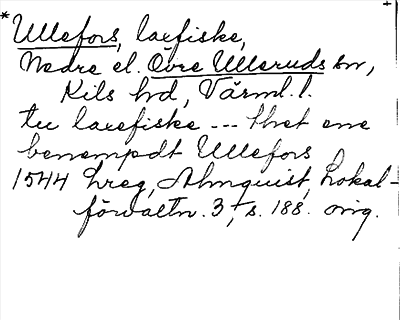 *Ullefors, laxfiske,
Nedre el. Övre Ulleruds sn,
Kils hd, Värml. l.
tu laxefiske --- thet ene
benempdt Ullefors
1544 hreg, Almquist, Lokal-
förvaltn. 3, s. 188. orig.